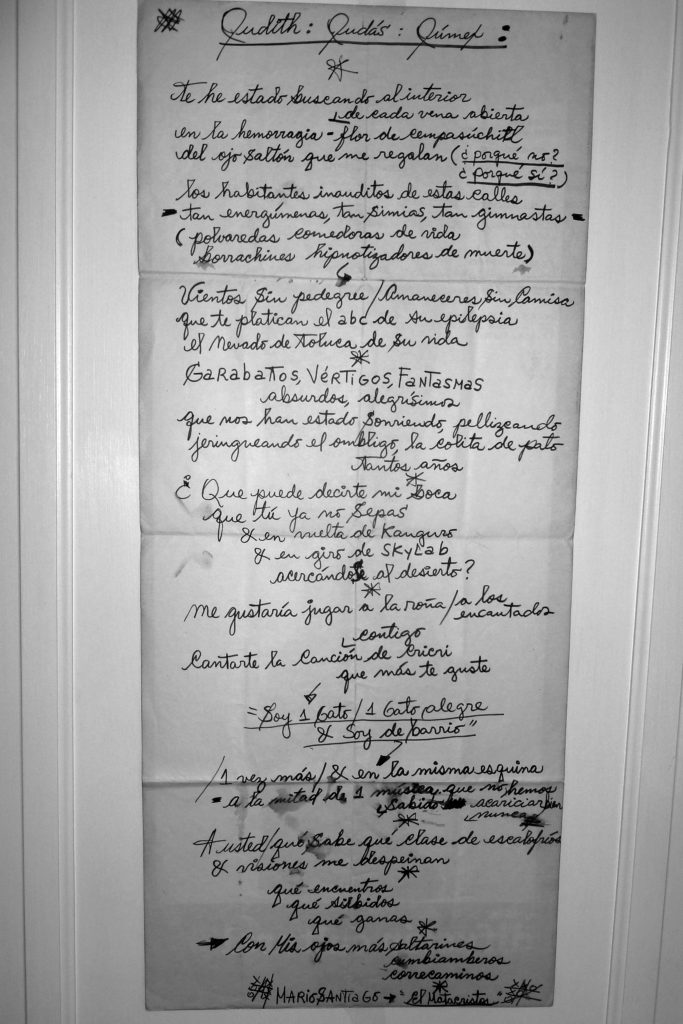 Judith: Judás: Júmex:
te he estado buscando al interior
de cada vena abierta
en la hemorragia-flor de cempasúchitl
del ojo saltón que me regalan (¿porqué no?
¿porqué sí?)
los habitantes inauditos de estas calles
- tan energúmenas, tan simias, tan gimnastas -
(polvaredas comedoras de vida
borrachines hipnotizadores de muerte)
Vientos sin pedegree / Amaneceres sin camisa
que te platican el abc de su epilepsia
el Nevado de Toluca de su vida
GARABATOS, VÉRTIGOS, FANTASMAS
absurdos, alegrísimos
que nos han estado sonriendo, pellizcando
jeringueando el ombligo, la colita de pato
tantos años
¿Que puede decirte mi boca
que tú ya no sepas
& en vuelta de Kanguro
& en giro de SKYLAB
acercándose al desierto?
me gustaría jugar a la roña / a los
encantados
contigo
Cantarte la canción de cricri
que más te guste
= Soy 1 Gato / 1 Gato alegre
& soy de barrio"
/ 1 vez más / & en la misma esquina
= a la mitad de 1 música que no hemos
sabido acariciar bien
nunca
A usted / qué sabe qué clase de escalofríos
& visiones me despeinan
qué encuentros
qué silbidos
qué ganas
→ Con Mis ojos más saltarines
cumbiamberos
correcaminos
MARIO SANTIAGO → "El Matacristos"